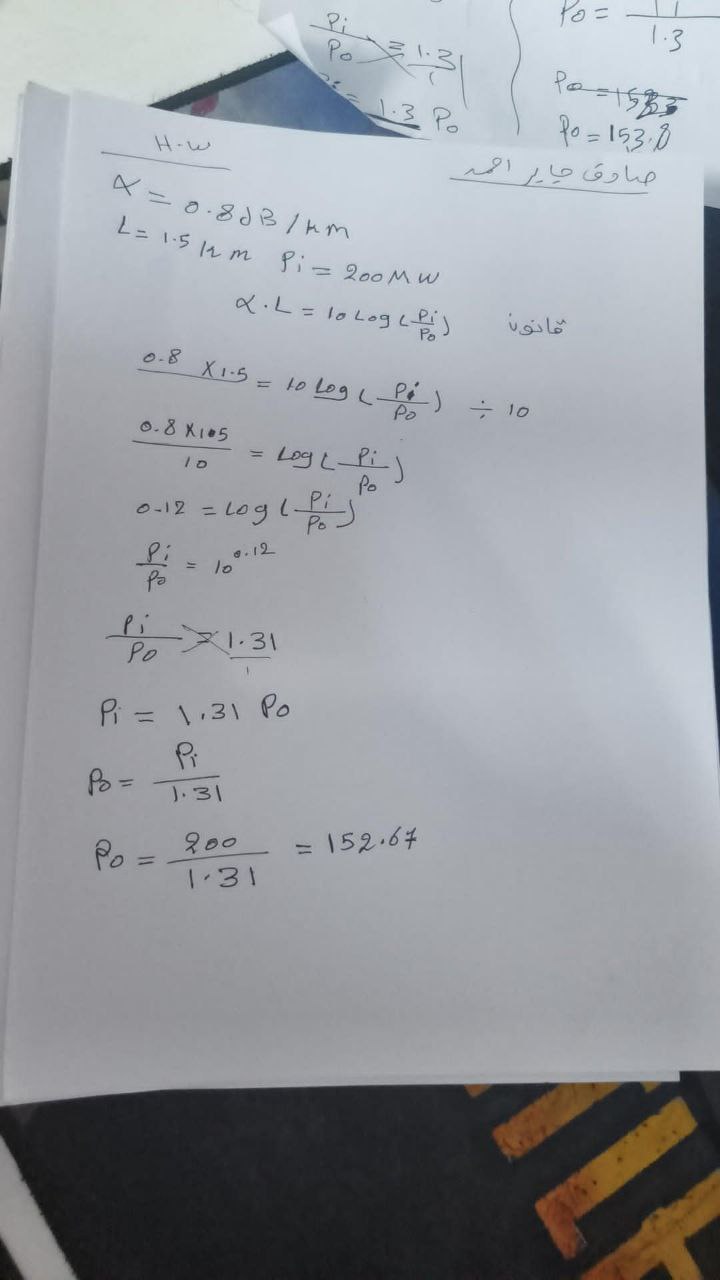 Pi/Po = 1.31/1
1.3 Po
1.3
Po = 153.8
H.W
صادق جابر احمد
α = 0.8 dB/km
L = 1.5 km Pi = 200 MW
α . L = 10 Log (Pi/Po) قانون
0.8 × 1.5 = 10 Log (Pi/Po) ÷ 10
0.8 × 1.5/10 = Log (Pi/Po)
0.12 = Log (Pi/Po)
Pi/Po = 10^0.12
Pi/Po = 1.31/1
Pi = 1.31 Po
Po = Pi/1.31
Po = 200/1.31 = 152.67